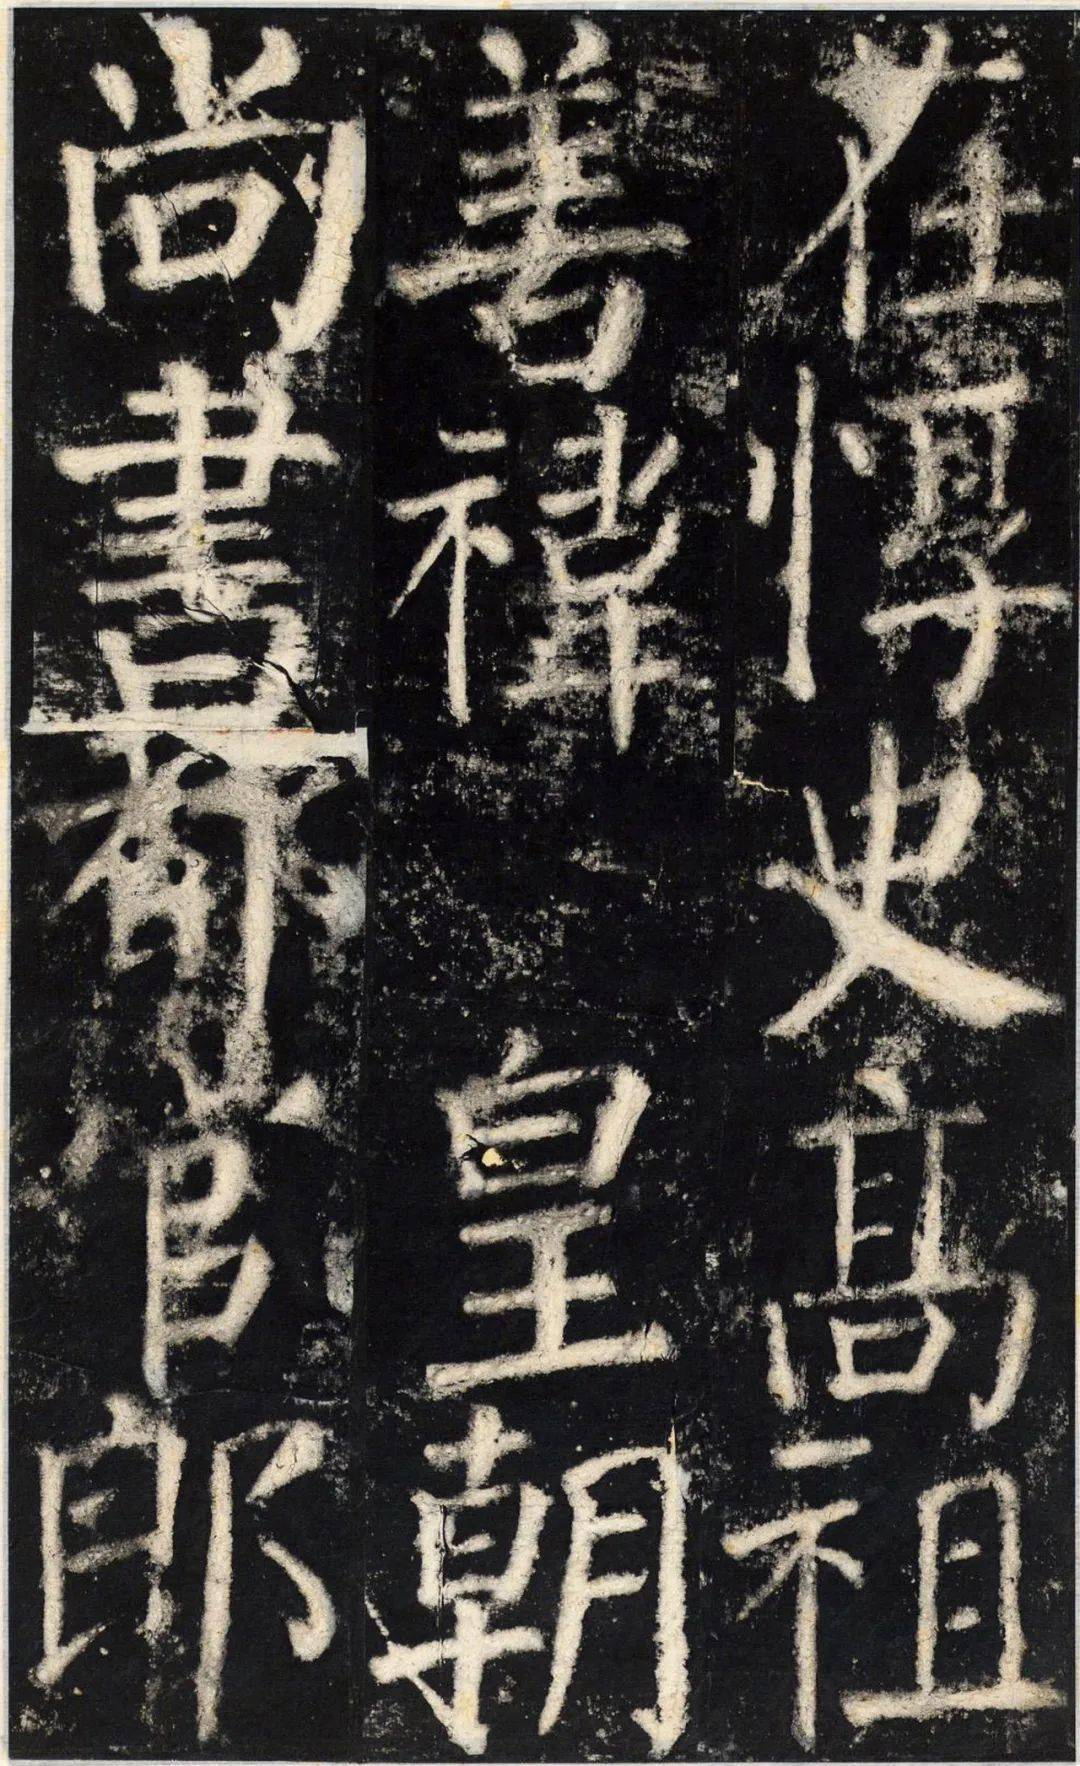 在惇史高祖
善禕 皇朝
尚書都官郎